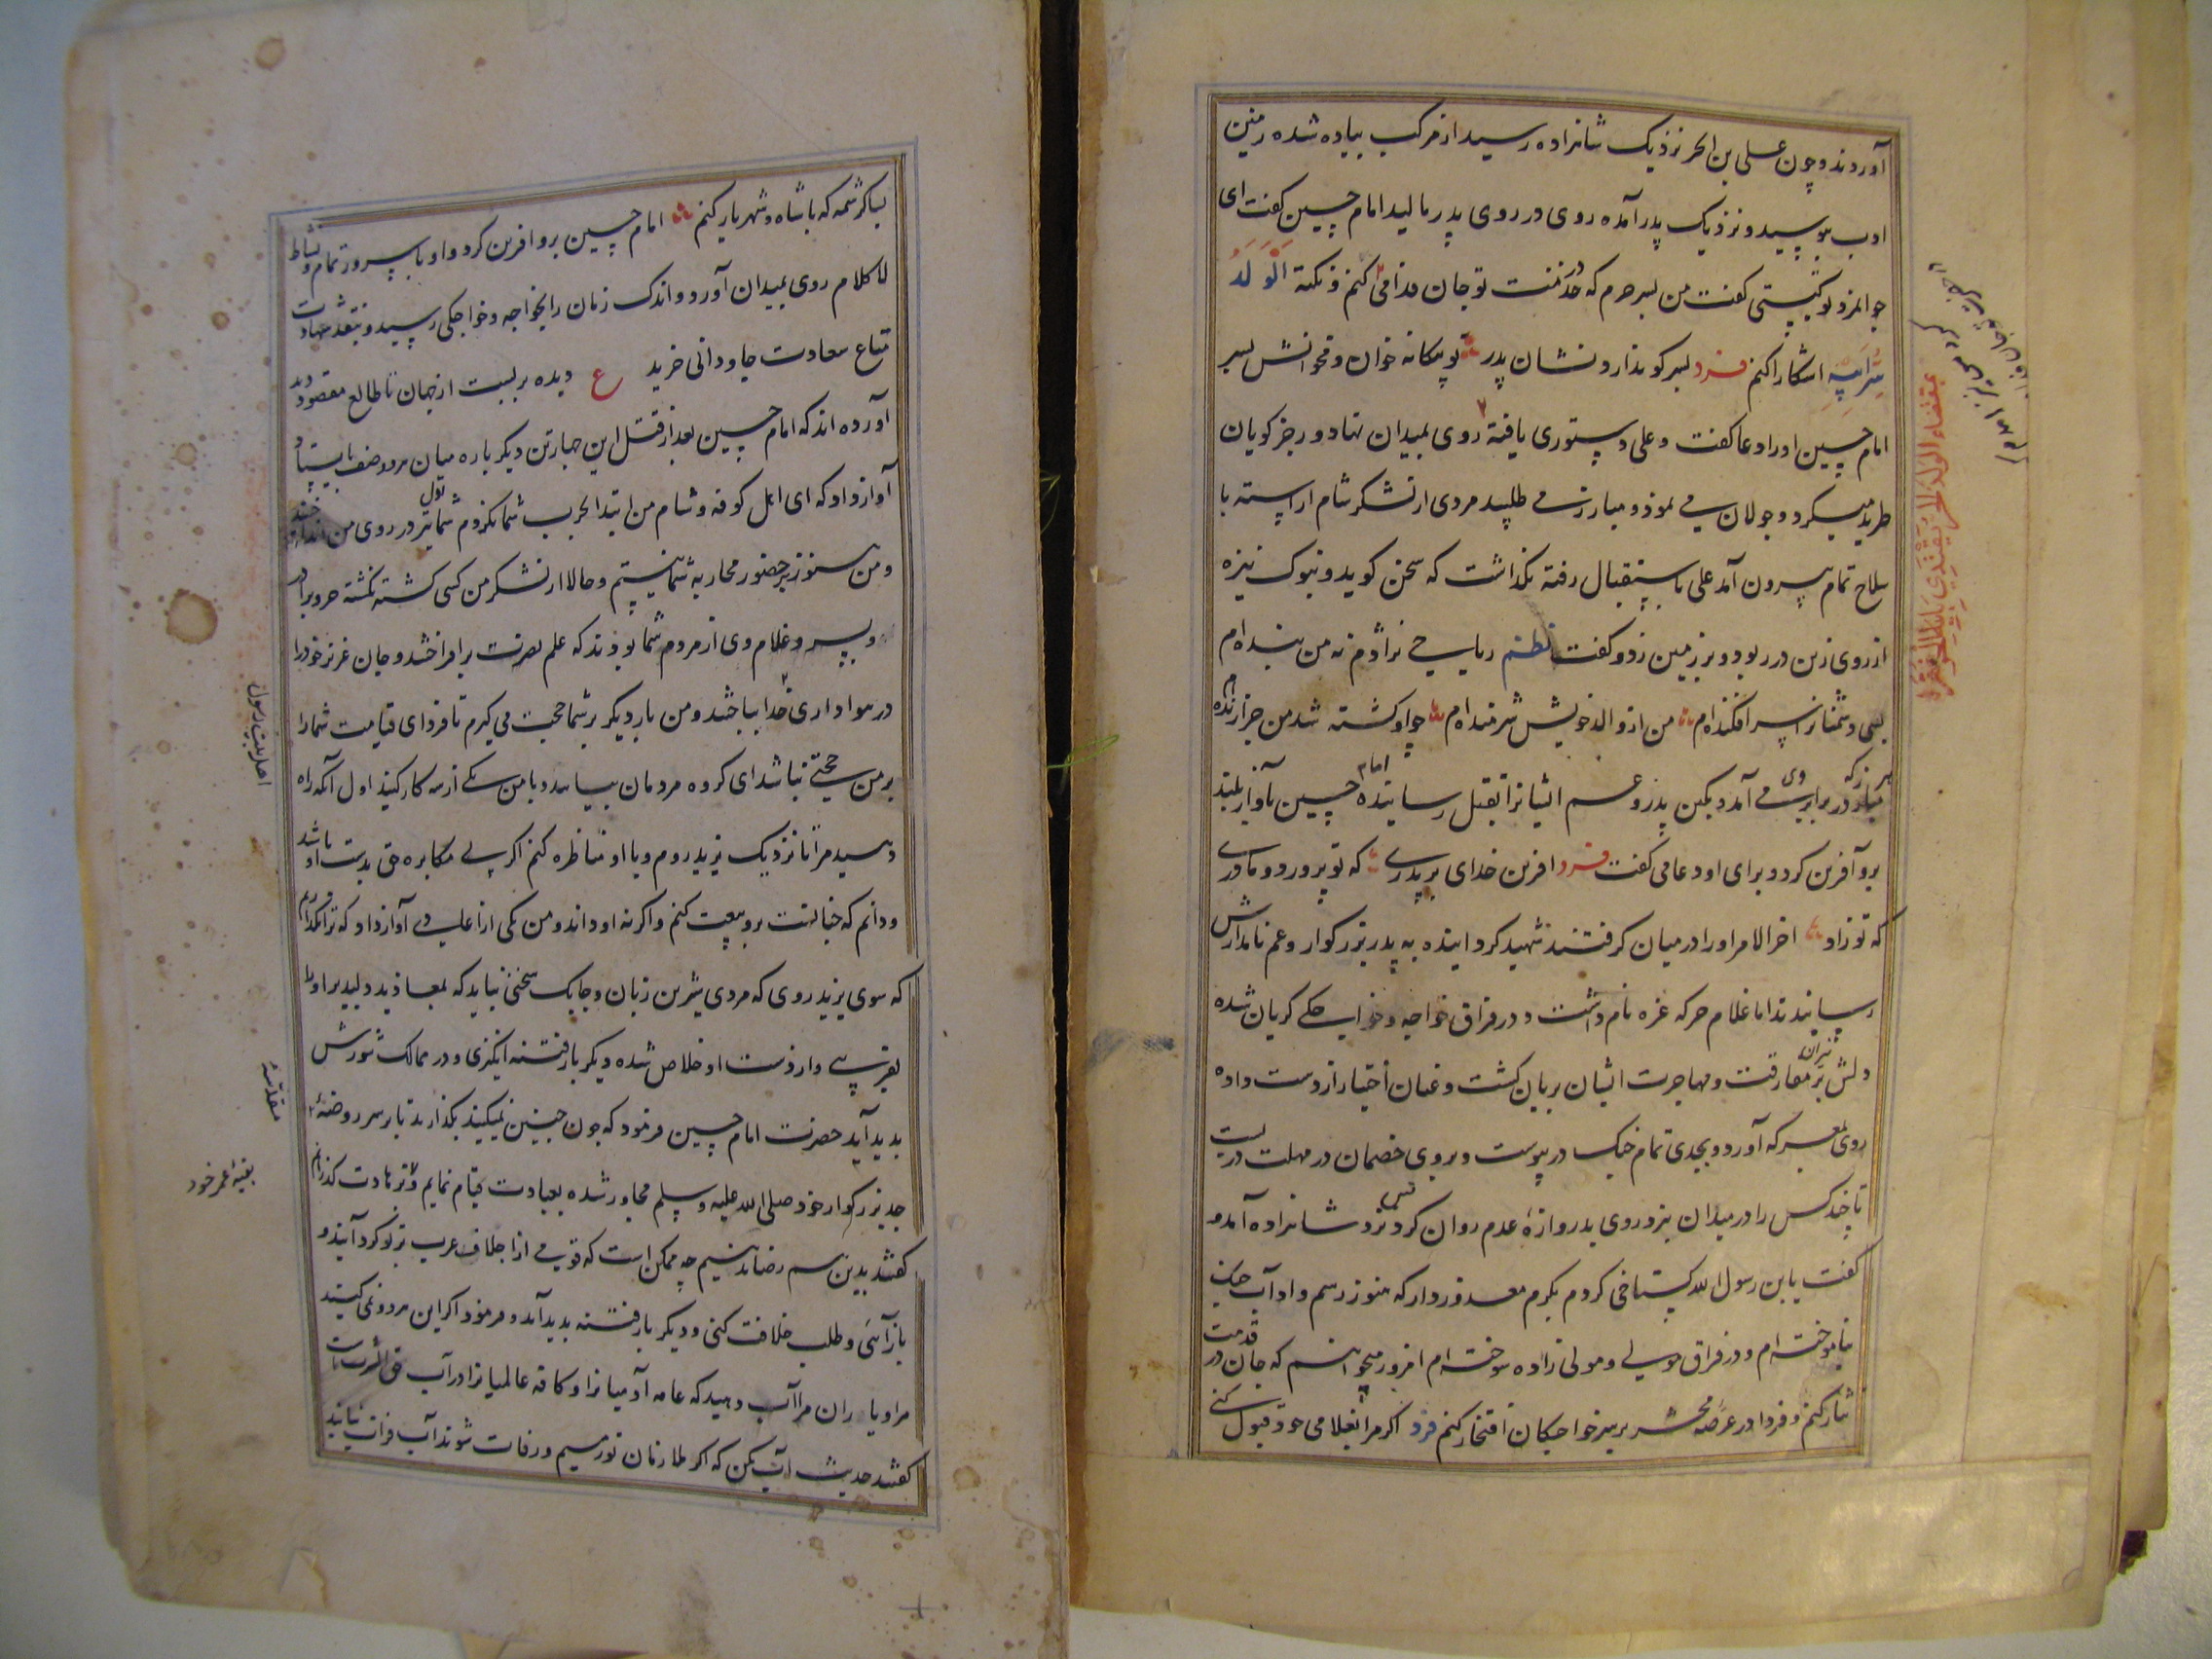 آوردند و چون علی بن الحر نزدیک شاهزاده رسید از مرکب پیاده شده زمین
ادب ببوسید و نزدیک پدر آمده روی در روی پدر مالید امام حسین گفت ای
جوانمرد تو کیستی گفت من پسر حرم که در خدمت تو جان فدا می کنم و نکته الولد
سر ابیه اشکارا کنم فرد پسر کو ندارد نشان پدر تو بیکانه خوان و مخوانش پسر
امام حسین او را دعا گفت و علی دستوری یافته روی بمیدان نهاد و رجز کویان
طرید میکرد و جولان می نمود و مبارز می طلبید مردی از لشکر شام اراسته با
سلاح تمام بیرون آمد علی باستقبال رفته نگذاشت که سخن کوید و بنوک نیزه
از روی زین در ربود و بر زمین زد و کفت نظم
بسی دشمنانرا سر افکنده ام من از والد خویش شرمنده ام چو او کشته شد من چرا زنده ام
هر که در برابر وی می آمد پدر و عم ایشانرا بقتل رسانیده امام حسین بآواز بلند
برو آفرین کرد و برای او دعا می کفت فرد افرین خدای بر پدری که تو پرورد و مادری
که تو زاد اخر الامر او را در میان کرفتند شهید کردانیده به پدر بزرکوار و عم نامدارش
رسانیدند اما غلام حر که غره نام داشت و در فراق خواجه و خواجکی کریان شده
دلش بر نیران مفارقت و مهاجرت ایشان بریان کشت و عنان اختیار از دست داده
روی بمعرکه آورد و بجدی تمام جنک در پیوست و بروی خصمان در مهلت در بست
تا چند کس را در میدان بزد و روی بدروازهٔ عدم روان کرد پس نزد شاهزاده آمد و
کفت یا بن رسول الله کستاخی کردم بکرم معذور دار که هنوز رسم و اداب جنک
نیاموخته ام و در فراق مولی و مولی زاده سوخته ام امروز میخواهم که جان در قدمت
نثار کنم و فردا در عرصه محشر بر سر خواجکان افتخار کنم فرد اکر مرا بغلامی خود قبول کنی
بمقتضاء الولد الحر یقتدی
بسا کرشمه که با شاه و شهریار کنم امام حسین برو افرین کرد و او با سرور تمام و نشاط
لا کلام روی بمیدان آورد و اندک زمان را بخواجه و خواجکی رسید و بنقد شهادت
متاع سعادت جاودانی خرید ع دیده بر بست از جهان تا طالع مقصود دید
آورده اند که امام حسین بعد از قتل این چهار تن دیکر باره میان هر دو صف بایستاد و
آواز داد که ای اهل کوفه و شام من ابتدا بحرب شما نکردم اول شما تیر در روی من انداخته
و من هنوز بر حضور محاربه شما نیستم و حالا از لشکر من کسی کشته نکشته حر و برادر
و پسر و غلام وی از مردم شما بودند که علم نصرت بر افراختند و جان عزیز خود را
در هواداری خدا بباختند و من بار دیکر بر شما حجت می کیرم تا فردای قیامت شما را
بر من حجتی نباشد ای کروه مردمان بیایید و با من یکی از سه کار کنید اول آنکه راه
دهید مرا تا نزدیک یزید روم و با او مناظره کنم اکر بی مکابره حق بدست او باشد
و دانم که خباثتست برو بیعت کنم و اکر نه او داند و من یکی از اعلب دی آواز داد که ترا نکذاریم
که سوی یزید روی که مردی شیرین زبان و چابک سخنی نباید که
بفریبی و از دست او خلاص شده دیکر بار فتنه انکیزی و در ممالک شورش
بدید آید حضرت امام حسین فرمود که چون چنین نمیکنید بکذارید تا بر سر روضهٔ
جد بزرکوار خود صلی الله علیه و سلم مجاور شده بعبادت قیام نمایم
کفتند بدین هم رضا ندهیم چه ممکن است که قومی از اجلاف عرب بر تو کرد آیند و
باز آئی و طلب خلافت کنی و دیکر بار فتنه بدید آید فرمود اکر این هر دو نمی کنید
مرا و یاران مرا آب دهید که عامه آدمیانرا و کافه عالمیانرا در آب حق
کفتند حدیث آب مکن که اکر و رفات شوند آب فرات نیابند
اهل بیت رسول
مقدسهٔ
بقیهٔ عمر خود